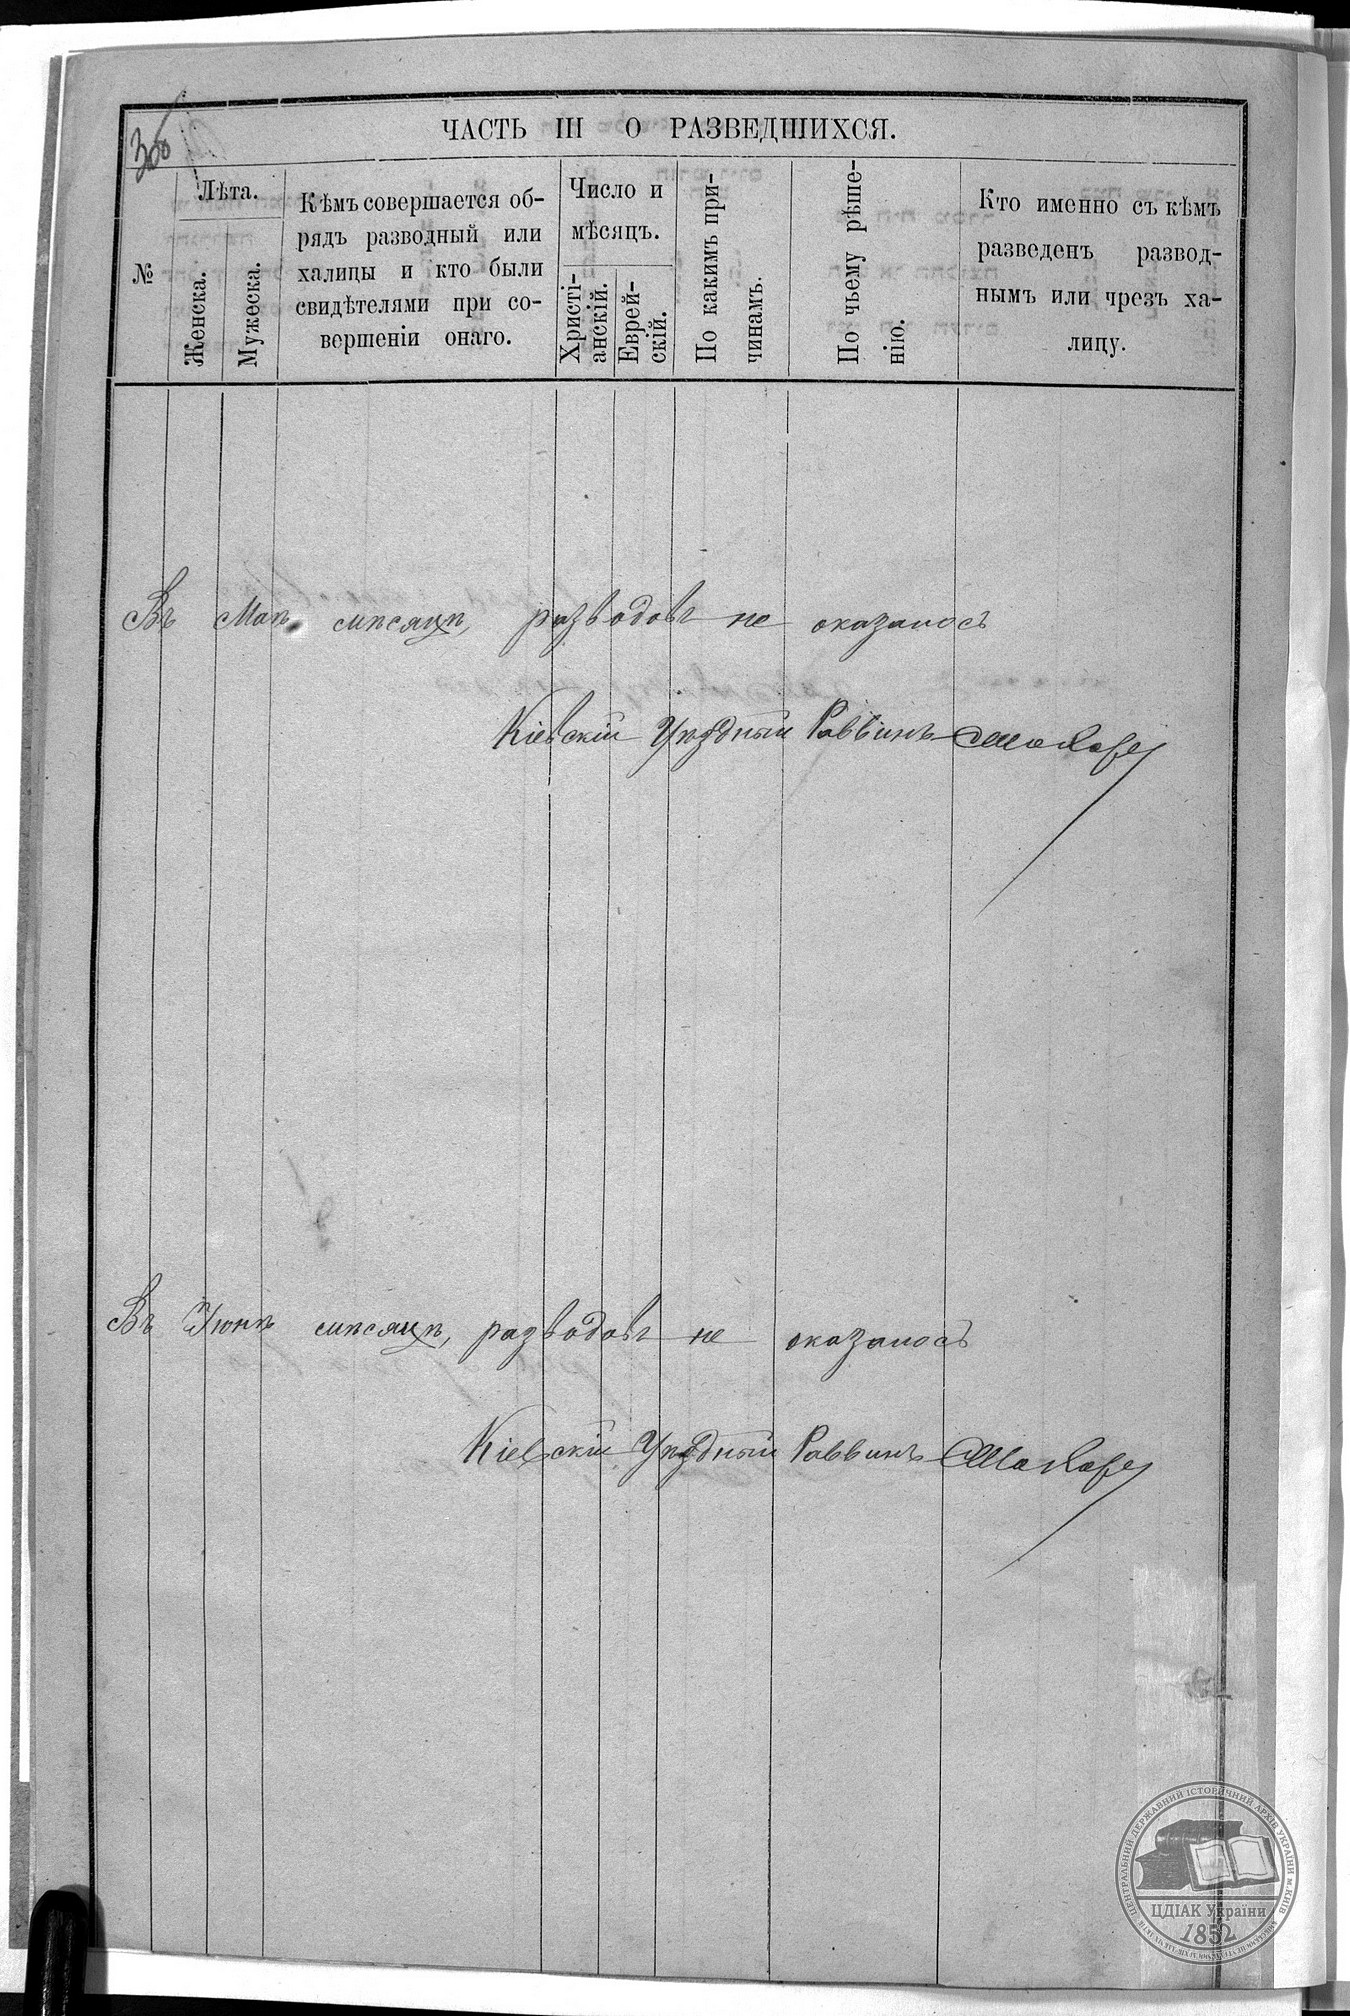 306
ЧАСТЬ III О РАЗВЕДШИХСЯ.
№
Лѣта.
Женска.
Мужеска.
Кѣмъ совершается об-
рядъ разводный или
халицы и кто были
свидѣтелями при со-
вершеніи онаго.
Число и
мѣсяцъ.
Христі-
анскій.
Еврей-
скій.
По какимъ при-
чинамъ.
По чьему рѣше-
нію.
Кто именно съ кѣмъ
разведенъ развод-
нымъ или чрезъ ха-
лицу.
Въ Маѣ мѣсяцѣ, разводовъ не оказалось
Кіевскій Уѣздный Раввинъ
Въ Іюнѣ мѣсяцѣ, разводовъ не оказалось
Кіевскій Уѣздный Раввинъ
ЦЕНТРАЛЬНИЙ ДЕРЖАВНИЙ ІСТОРИЧНИЙ АРХІВ УКРАЇНИ м.КИЇВ
ЦДІАК України
1852